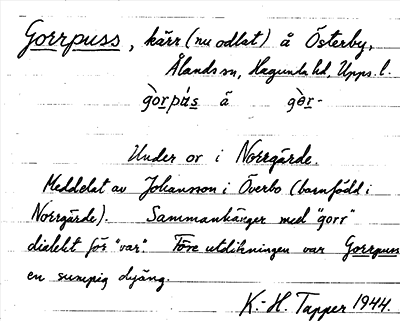 Gorrpuss, kärr (nu odlat) å Österby,
Ålands sn, Hagunda hd, Upps. l.
gòrpùs å gòr-
Under or i Norrgärde.
Meddelat av Johansson i Överbo (barnfödd i
Norrgärde). Sammanhänger med "gorr"
dialekt för "var". Före utdikningen var Gorrpuss
en sumpig dyäng.
K.-H. Tapper 1944.